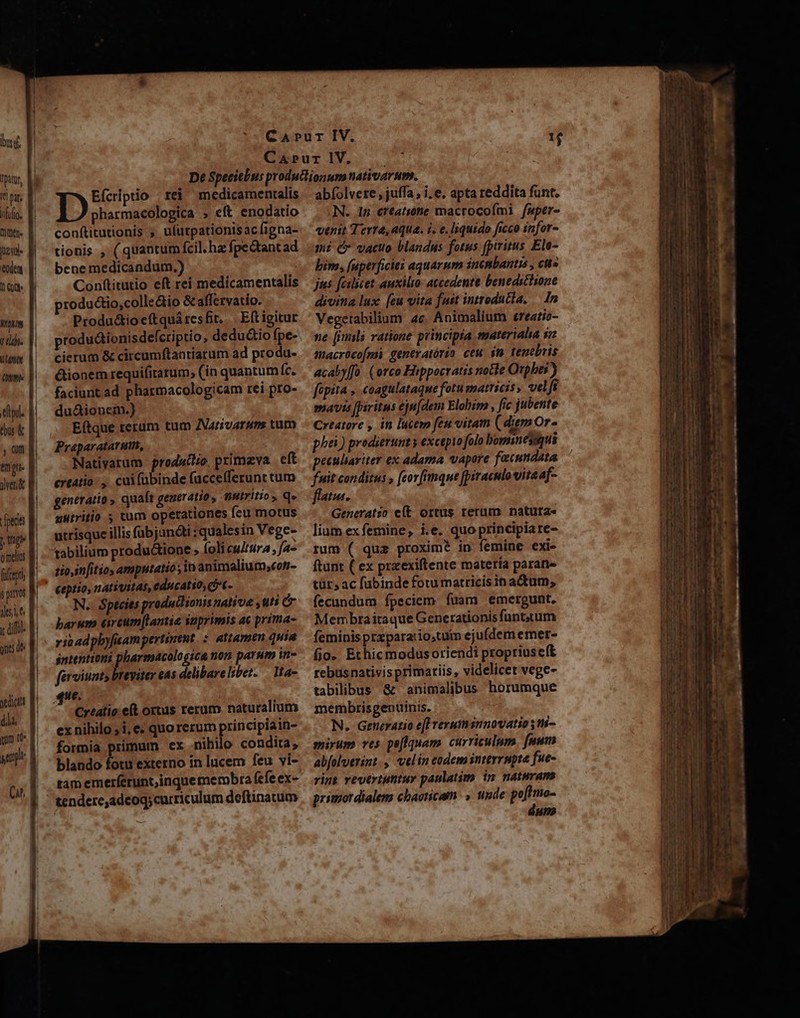 CAPUT IV. 15
CAPUT IV.
De Speciebus productionum nativarum.
DEſcriptio rei medicamentalis
pharmacologica, eſt enodatio
conſtitutionis, uſurpationis ac ſigna-
tionis, (quantum ſcil. hæ ſpectant ad
bene medicandum.)
Conſtitutio eſt rei medicamentalis
productio, collectio & aſſervatio.
Productio eſt quâ res fit. Eſt igitur
productionis deſcriptio, deductio ſpe-
cierum & circumſtantiarum ad produ-
ctionem requiſitarum, (in quantum ſc.
faciunt ad pharmacologicam rei pro-
ductionem.)
Eſtque rerum tum Nativarum tum
Præparatarum,
Nativarum productio primæva eſt
creatio, cui ſubinde ſucceſſerunt tum
generatio, quaſt generatio, nutritio, q.
nutritio; tum operationes ſeu motus
utrisque illis ſubjuncti: quales in Vege-
tabilium productione, ſoli cultura, ſa-
tio, inſitio, amputatio; in animalium, con-
ceptio, nativitas, educatio, &c.
N. Species productionis nativæ, uti &
harum circumſtantiæ inprimis ac prima-
riò ad phyſicam pertinent: attamen quia
intentioni pharmacologicæ non parum in-
ſerviunt, breviter eas delibare libet. Ita-
que.
Creatio eſt ortus rerum naturalium
ex nihilo, i. e. quo rerum principia in-
formia primum ex nihilo condita,
blando fotu externo in lucem ſeu vi-
tam emerſerunt, inque membra ſeſe ex-
tendere, adeoq; curriculum deſtinatum
abſolvere, juſſa, i. e. apta reddita ſunt.
N. In creatione macrocoſmi ſuper-
venit Terræ, aquæ. i. e. liquido ſicco infor-
mi & vacuo blandus fotus ſpiritus Elo-
him, ſuperficiei aquarum incubantis, cu-
jus ſcilicet auxilio accedente benedictione
divina lux ſeu vita fuit introducta. In
Vegetabilium ac Animalium creatio-
ne ſimili ratione principia materialia in
macrocoſmi generatorio ceu in tenebris
acabyſſo (orco Hippocratis nocte Orphei)
ſopita, coagulataque fotu matricis, vel ſi
mavis ſpiritus ejuſdem Elohim, ſic jubente
Creatore, in lucem ſeu vitam (diem Or-
phei) prodierunt, excepto ſolo homine, qui
peculiariter ex adama vapore fœcundata
fuit conditus, ſeorſimque ſpiraculo vitæ af-
flatus.
Generatio eſt ortus rerum natura-
lium ex ſemine, i. e. quo principia re-
rum (quæ proximè in ſemine exi-
ſtunt (ex præexiſtente materia paran-
tur, ac ſubinde fotu matricis in actum,
ſecundum ſpeciem ſuam emergunt.
Membra itaque Generationis ſunt, tum
ſeminis præparatio, tum ejuſdem emer-
ſio. Et hic modus oriendi proprius eſt
rebus nativis primariis, videlicet vege-
tabilibus & animalibus horumque
membris genuinis.
N. Generatio eſt rerum innovatio; ni-
mirum res poſtquam curriculum ſuum
abſolverint, vel in eodem interruptæ fue-
rint revertuntur paulatim in naturam
primordialem chaoticam, unde poſtmo-
dum